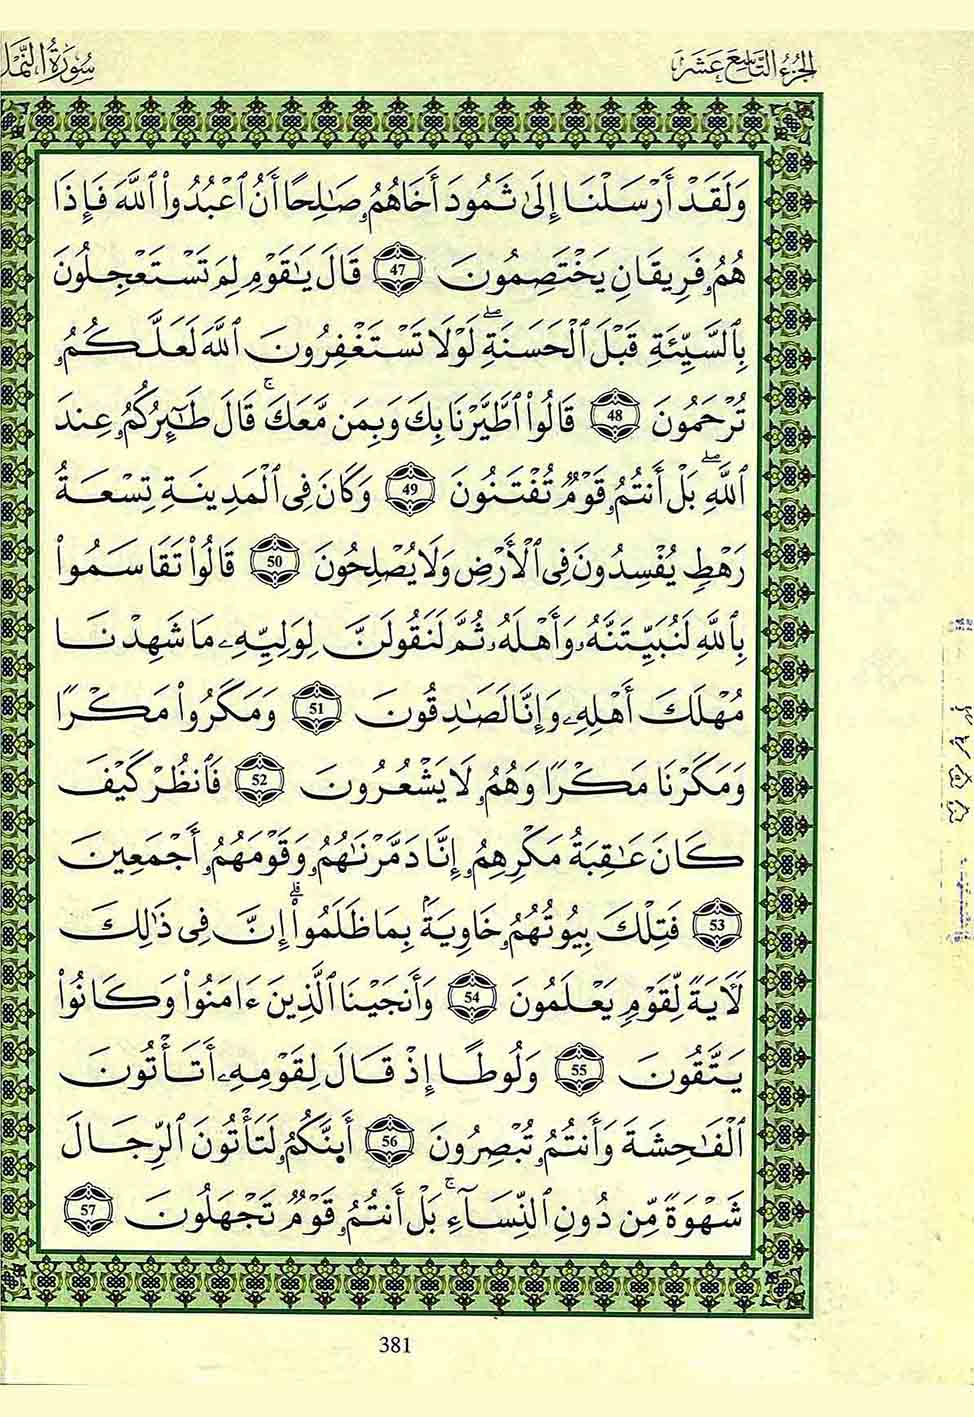 الجزء التاسع عشر
سورة النمل
وَلَقَدْ أَرْسَلْنَا إِلَىٰ ثَمُودَ أَخَاهُمُۥ صَٰلِحًا أَنُ ٱعْبُدُوا۟ ٱللَّهَ فَإِذَا
هُمُۥ فَرِيقَانِ يَخْتَصِمُونَ 47 قَالَ يَٰقَوْمِ لِمَ تَسْتَعْجِلُونَ
بِٱلسَّيِّئَةِ قَبْلَ ٱلْحَسَنَةِ ۖ لَوْلَا تَسْتَغْفِرُونَ ٱللَّهَ لَعَلَّكُمُۥ
تُرْحَمُونَ 48 قَالُوا۟ ٱطَّيَّرْنَا بِكَ وَبِمَن مَّعَكَ ۚ قَالَ طَٰٓئِرُكُمُۥ عِندَ
ٱللَّهِ ۖ بَلْ أَنتُمُۥ قَوْمٌ تُفْتَنُونَ 49 وَكَانَ فِى ٱلْمَدِينَةِ تِسْعَةُ
رَهْطٍ يُفْسِدُونَ فِى ٱلْأَرْضِ وَلَا يُصْلِحُونَ 50 قَالُوا۟ تَقَاسَمُوا۟
بِٱللَّهِ لَنُبَيِّتَنَّهُۥ وَأَهْلَهُۥ ثُمَّ لَنَقُولَنَّ لِوَلِيِّهِۦ مَا شَهِدْنَا
مُهْلَكَ أَهْلِهِۦ وَإِنَّا لَصَٰدِقُونَ 51 وَمَكَرُوا۟ مَكْرًا
وَمَكَرْنَا مَكْرًا وَهُمُۥ لَا يَشْعُرُونَ 52 فَٱنظُرْ كَيْفَ
كَانَ عَٰقِبَةُ مَكْرِهِمُۥ إِنَّا دَمَّرْنَٰهُمُۥ وَقَوْمَهُمُۥ أَجْمَعِينَ
53 فَتِلْكَ بِيُوتُهُمُۥ خَاوِيَةً بِمَا ظَلَمُوا۟ ۗ إِنَّ فِى ذَٰلِكَ
لَءَايَةً لِّقَوْمٍ يَعْلَمُونَ 54 وَأَنجَيْنَا ٱلَّذِينَ ءَامَنُوا۟ وَكَانُوا۟
يَتَّقُونَ 55 وَلُوطًا إِذْ قَالَ لِقَوْمِهِۦ أَتَأْتُونَ
ٱلْفَٰحِشَةَ وَأَنتُمُۥ تُبْصِرُونَ 56 أَىِٕنَّكُمُۥ لَتَأْتُونَ ٱلرِّجَالَ
شَهْوَةً مِّن دُونِ ٱلنِّسَآءِ ۚ بَلْ أَنتُمُۥ قَوْمٌ تَجْهَلُونَ 57
381